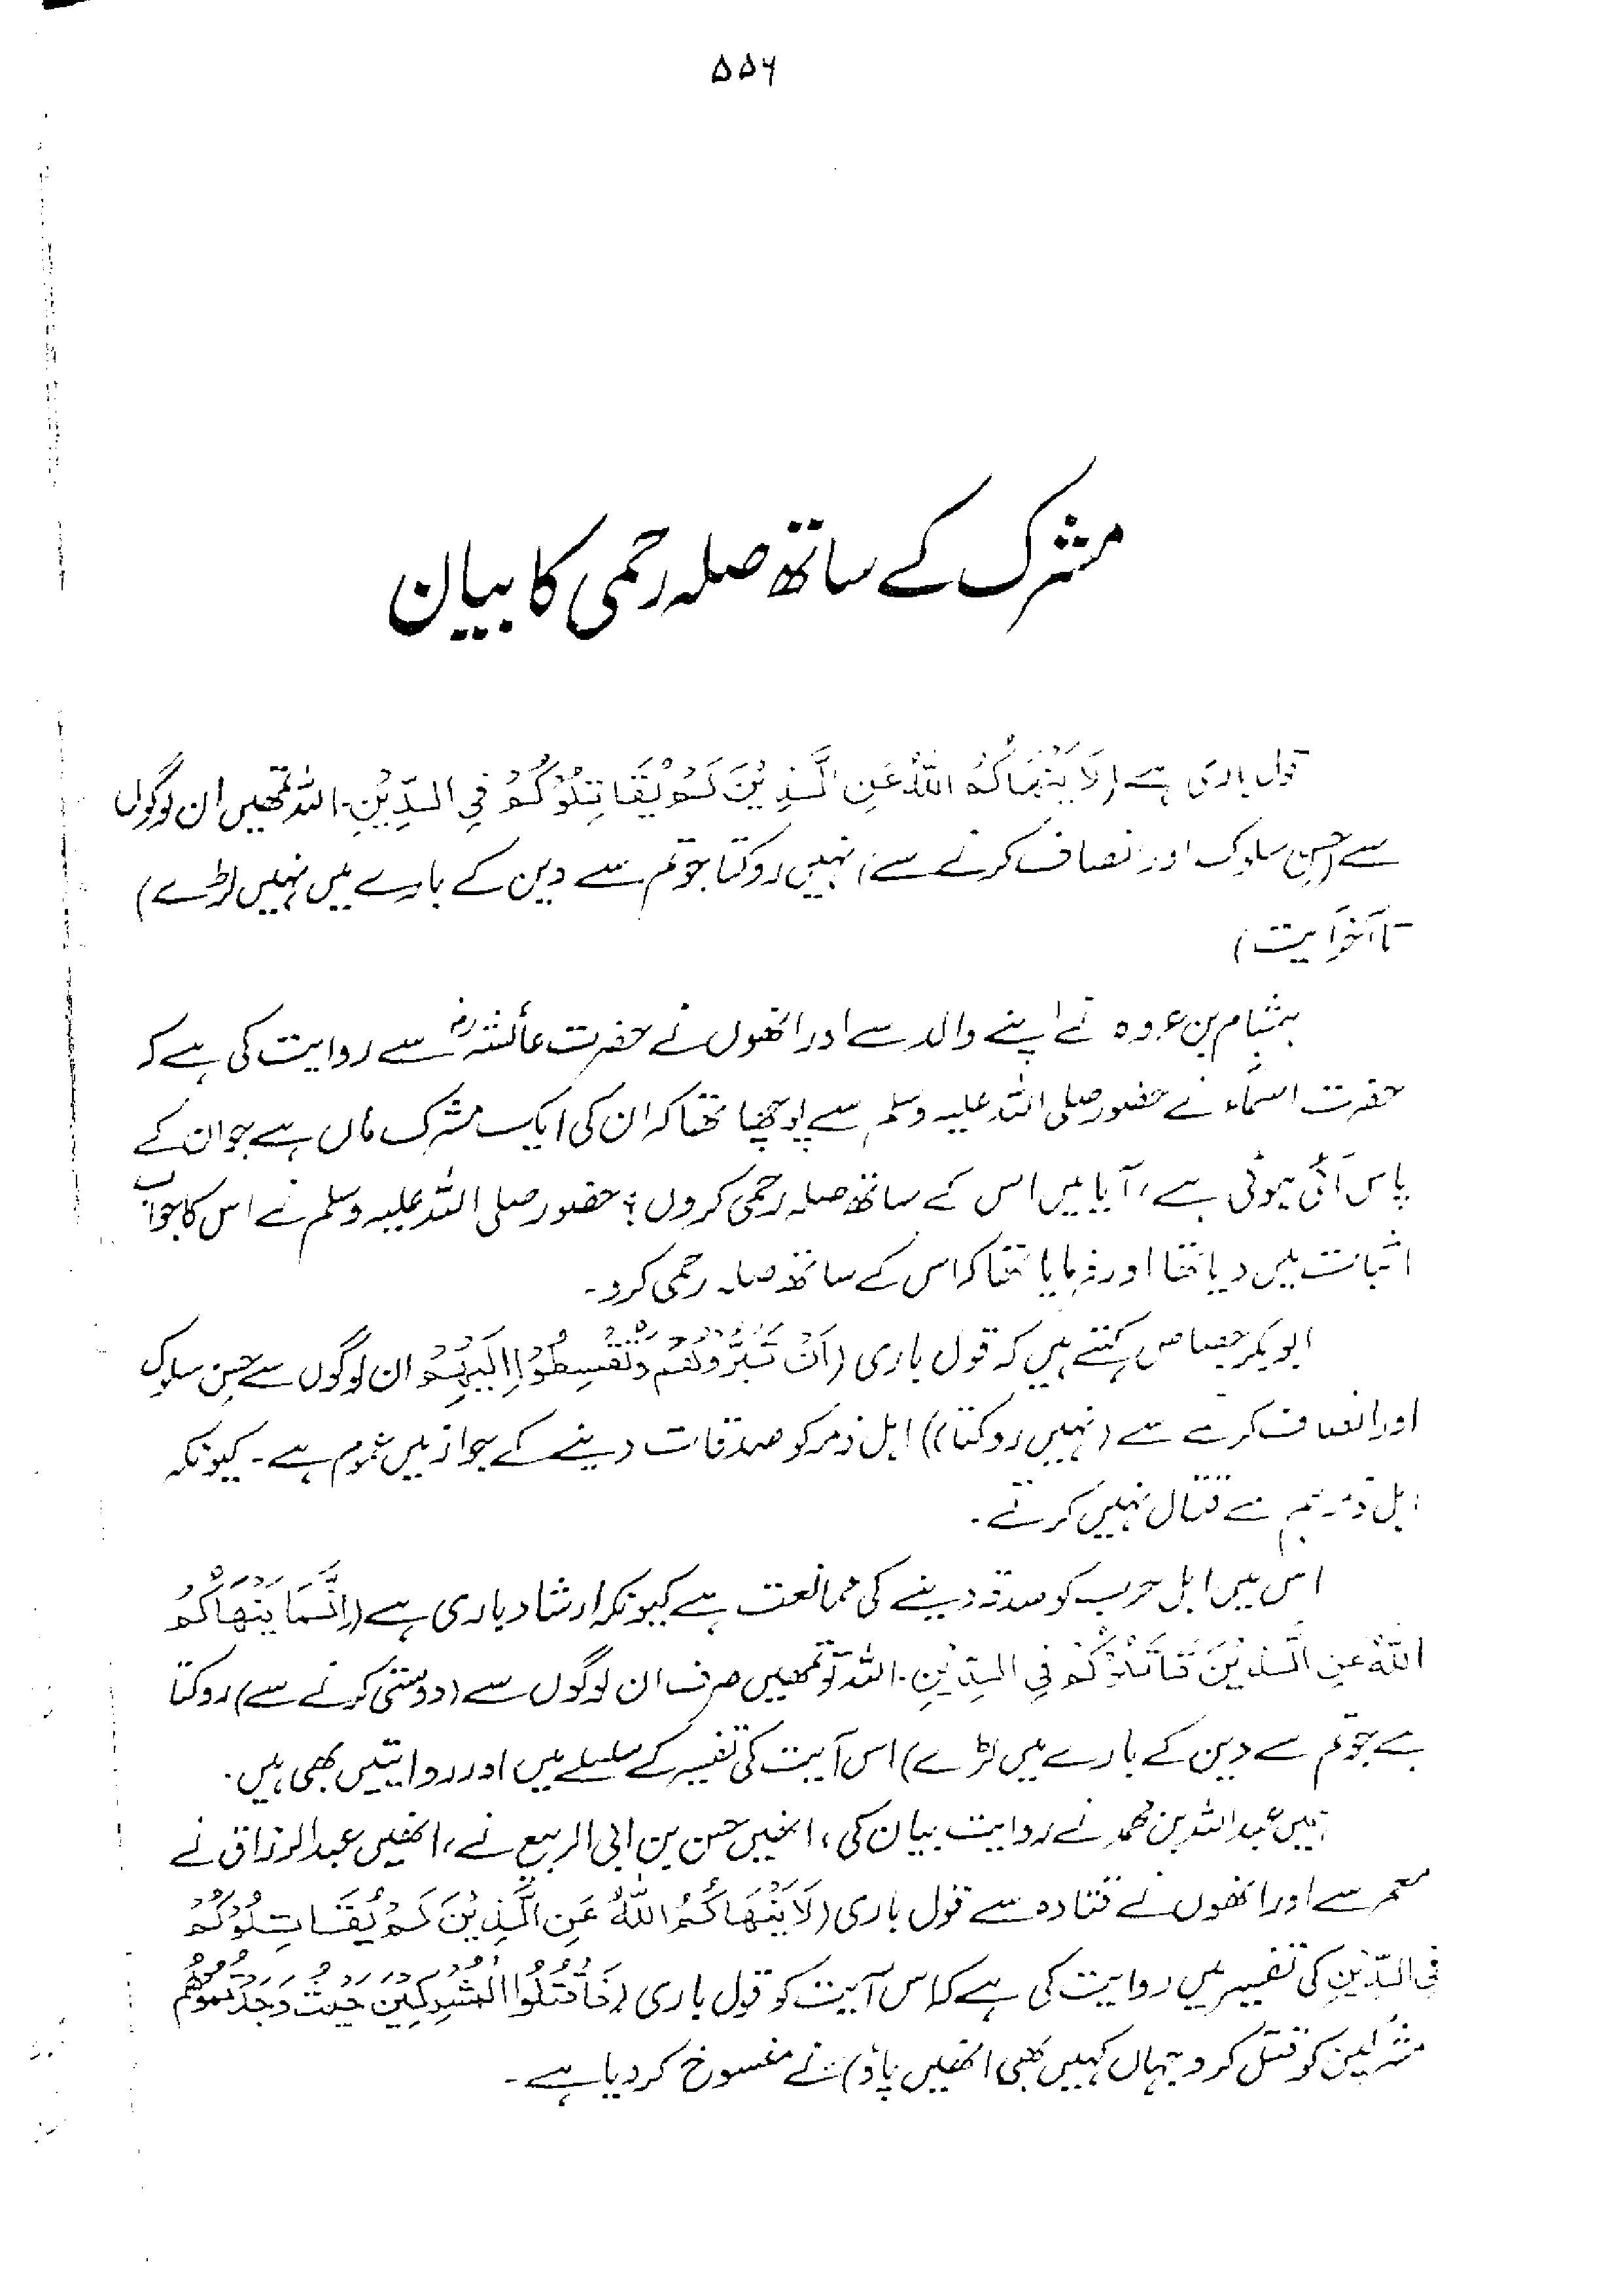 ۵۵۶
مشرک کے ساتھ صلہ رحمی کا بیان
قول باری ہے (لَا يَنْهَاكُمُ اللّٰهُ عَنِ الَّذِيْنَ لَمْ يُقَاتِلُوْكُمْ فِي الدِّيْنِ۔ اللہ تمھیں ان لوگوں
سے (حسن سلوک اور انصاف کرنے سے) نہیں روکتا جو تم سے دین کے بارے میں نہیں لڑے)
تا آخر آیت)
ہشام بن عروہ نے اپنے والد سے اور انھوں نے حضرت عائشہؓ سے روایت کی ہے کہ
حضرت اسماء نے حضور صلی اللہ علیہ وسلم سے پوچھا تھا کہ ان کی ایک مشرک ماں ہے جو ان کے
پاس آئی ہوئی ہے، آیا میں اس کے ساتھ صلہ رحمی کروں؟ حضور صلی اللہ علیہ وسلم نے اس کا جواب
اثبات میں دیا تھا اور فرمایا تھا کہ اس کے ساتھ صلہ رحمی کرو۔
ابو بکر جصاص کہتے ہیں کہ قول باری (اَنْ تَبَرُّوْهُمْ وَتُقْسِطُوْا اِلَيْهِمْ ان لوگوں سے حسن سلوک
اور انصاف کرنے سے (نہیں روکتا)) اہل ذمہ کو صدقات دینے کے جواز میں عموم ہے۔ کیونکہ
اہل ذمہ ہم سے قتال نہیں کرتے۔
اس میں اہل حرب کو صدقہ دینے کی ممانعت ہے کیونکہ ارشاد باری ہے (اِنَّمَا يَنْهَاكُمُ
اللّٰهُ عَنِ الَّذِيْنَ قَاتَلُوْكُمْ فِي الدِّيْنِ۔ اللہ تو تمھیں صرف ان لوگوں سے (دوستی کرنے سے) روکتا
ہے جو تم سے دین کے بارے میں لڑے) اس آیت کی تفسیر کے سلسلے میں اور روایتیں بھی ہیں۔
ہمیں عبداللہ بن محمد نے روایت بیان کی، انھیں حسن بن ابی الربیع نے، انھیں عبدالرزاق نے
معمر سے اور انھوں نے قتادہ سے قول باری (لَا يَنْهَاكُمُ اللّٰهُ عَنِ الَّذِيْنَ لَمْ يُقَاتِلُوْكُمْ
فِي الدِّيْنِ کی تفسیر میں روایت کی ہے کہ اس آیت کو قول باری (فَاقْتُلُوا الْمُشْرِكِيْنَ حَيْثُ وَجَدْتُّمُوْهُمْ
مشرکین کو قتل کرو جہاں کہیں بھی انھیں پاؤ) نے منسوخ کر دیا ہے۔